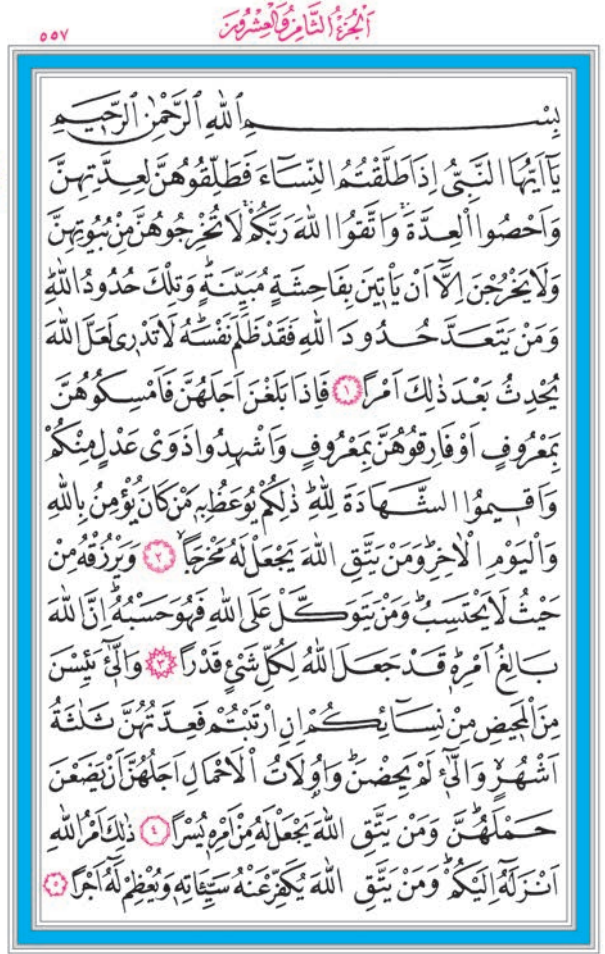 اَلْجُزْءُ الثَّامِنُ وَالْعِشْرُونَ
٥٥٧
بِسْمِ اللهِ الرَّحْمٰنِ الرَّحِيمِ
يَٓا اَيُّهَا النَّبِيُّ اِذَا طَلَّقْتُمُ النِّسَٓاءَ فَطَلِّقُوهُنَّ لِعِدَّتِهِنَّ
وَاَحْصُوا الْعِدَّةَۚ وَاتَّقُوا اللهَ رَبَّكُمْۚ لَا تُخْرِجُوهُنَّ مِنْ بُيُوتِهِنَّ
وَلَا يَخْرُجْنَ اِلَّٓا اَنْ يَأْتِينَ بِفَاحِشَةٍ مُبَيِّنَةٍۜ وَتِلْكَ حُدُودُ اللهِۜ
وَمَنْ يَتَعَدَّ حُدُودَ اللهِ فَقَدْ ظَلَمَ نَفْسَهُۜ لَا تَدْرِى لَعَلَّ اللهَ
يُحْدِثُ بَعْدَ ذٰلِكَ اَمْرًا ﴿١﴾ فَاِذَا بَلَغْنَ اَجَلَهُنَّ فَاَمْسِكُوهُنَّ
بِمَعْرُوفٍ اَوْ فَارِقُوهُنَّ بِمَعْرُوفٍ وَاَشْهِدُوا ذَوَىْ عَدْلٍ مِنْكُمْ
وَاَقِيمُوا الشَّهَادَةَ لِلّٰهِۜ ذٰلِكُمْ يُوعَظُ بِهِ مَنْ كَانَ يُؤْمِنُ بِاللهِ
وَالْيَوْمِ الْاٰخِرِۜ وَمَنْ يَتَّقِ اللهَ يَجْعَلْ لَهُ مَخْرَجًاۙ ﴿٢﴾ وَيَرْزُقْهُ مِنْ
حَيْثُ لَا يَحْتَسِبُۜ وَمَنْ يَتَوَكَّلْ عَلَى اللهِ فَهُوَ حَسْبُهُۜ اِنَّ اللهَ
بَالِغُ اَمْرِهِۜ قَدْ جَعَلَ اللهُ لِكُلِّ شَىْءٍ قَدْرًا ﴿٣﴾ وَالّٰٓئِ يَئِسْنَ
مِنَ الْمَحِيضِ مِنْ نِسَٓائِكُمْ اِنِ ارْتَبْتُمْ فَعِدَّتُهُنَّ ثَلٰثَةُ
اَشْهُرٍۙ وَالّٰٓئِ لَمْ يَحِضْنَۜ وَاُولَاتُ الْاَحْمَالِ اَجَلُهُنَّ اَنْ يَضَعْنَ
حَمْلَهُنَّۜ وَمَنْ يَتَّقِ اللهَ يَجْعَلْ لَهُ مِنْ اَمْرِهِ يُسْرًا ﴿٤﴾ ذٰلِكَ اَمْرُ اللهِ
اَنْزَلَهُٓ اِلَيْكُمْۜ وَمَنْ يَتَّقِ اللهَ يُكَفِّرْ عَنْهُ سَيِّئَاتِهِ وَيُعْظِمْ لَهُٓ اَجْرًا ﴿٥﴾